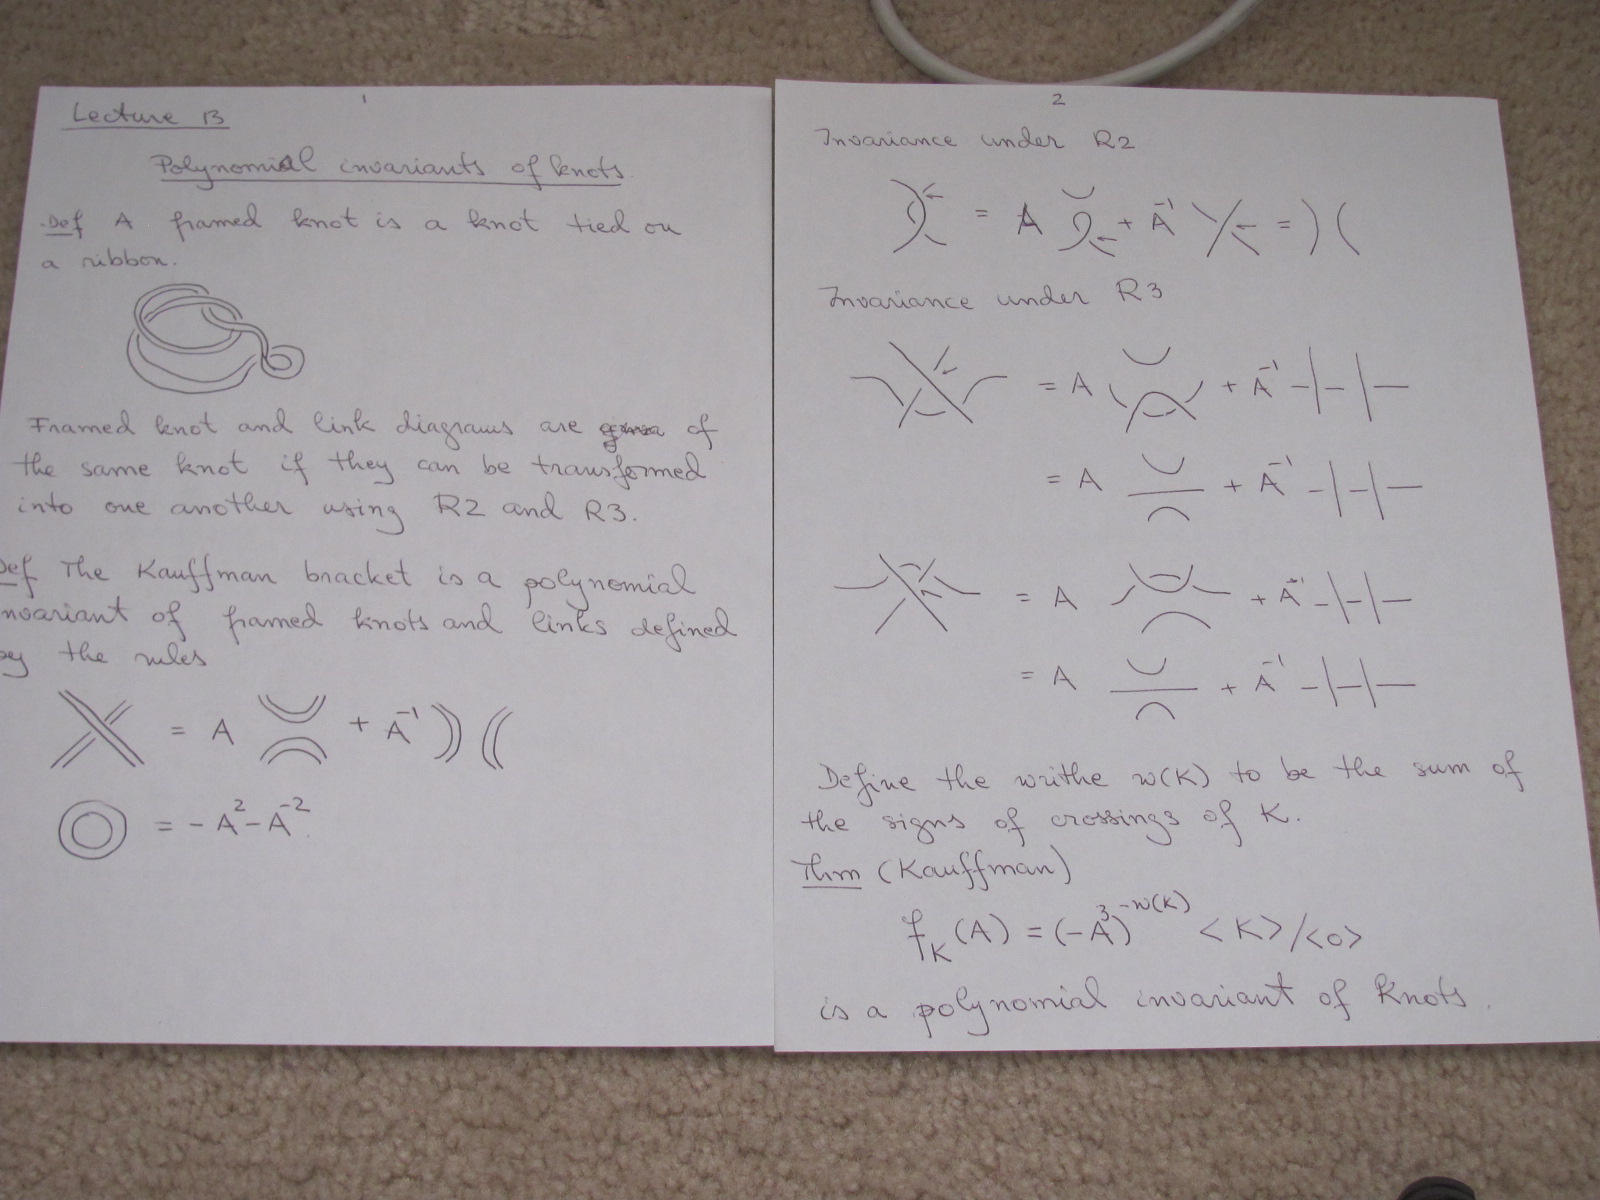 1
Lecture 13
Polynomial invariants of knots.
Def A framed knot is a knot tied on
a ribbon.
Framed knot and link diagrams are of
the same knot if they can be transformed
into one another using R2 and R3.
Def The Kauffman bracket is a polynomial
invariant of framed knots and links defined
by the rules
= A + A⁻¹
= - A² - A⁻².
2
Invariance under R2
= A + A⁻¹ =
Invariance under R3
= A + A⁻¹
= A + A⁻¹
= A + A⁻¹
= A + A⁻¹
Define the writhe w(K) to be the sum of
the signs of crossings of K.
Thm (Kauffman)
f_K(A) = (-A³)^{-w(K)} <K>/<O>
is a polynomial invariant of knots.